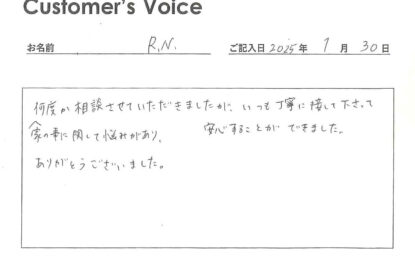 Customer's Voice
お名前 R.N. ご記入日 2025年 1月 30日
何度か相談させていただきましたが、いつも丁寧に接して下さって
家の事に関して悩みがあり、 安心することができました。
ありがとうございました。